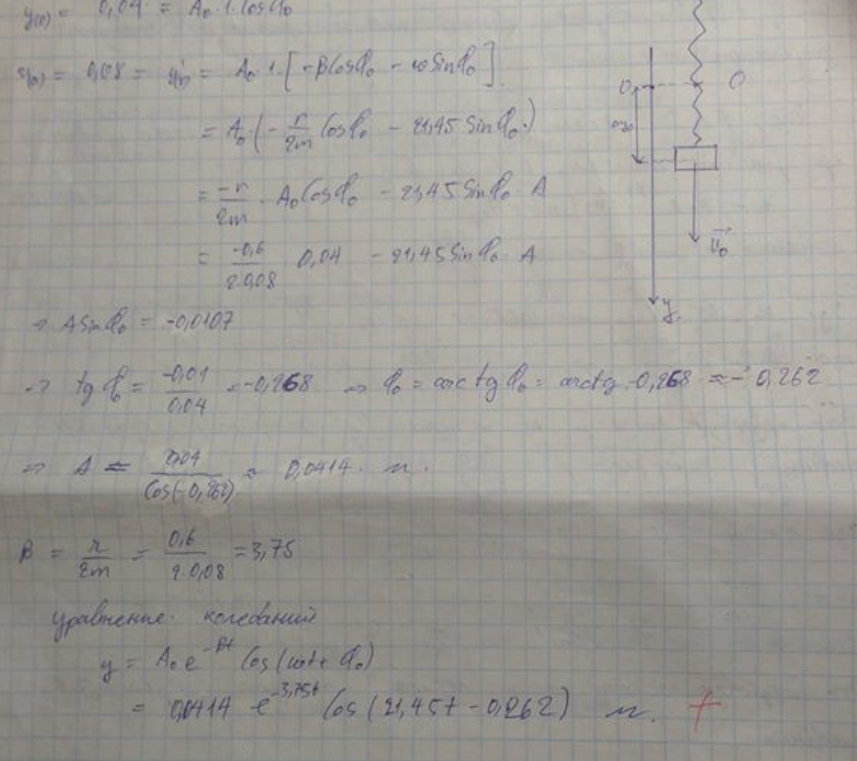 y(0) = 0,04 = A₀·1·cosφ₀
v(0) = 0,08 = y'(0) = A₀·1·[-βcosφ₀ - ωsinφ₀]
= A₀·(-r/2m cosφ₀ - 21,45 sinφ₀)
= -r/2m · A₀cosφ₀ - 21,45 sinφ₀ · A
= -0,6/2·0,08 0,04 - 21,45 sinφ₀ · A
⇒ A sinφ₀ = -0,0107
⇒ tgφ₀ = -0,01/0,04 = -0,268 ⇒ φ₀ = arctgφ₀ = arctg -0,268 ≈ -0,262
⇒ A = 0,04/cos(-0,262) = 0,0414 м.
β = r/2m = 0,6/2·0,08 = 3,75
уравнение колебаний
y = A₀e^-βt cos(ωt + φ₀)
= 0,0414 e^-3,75t cos(21,45t - 0,262) м. +
0
O
v₀
y